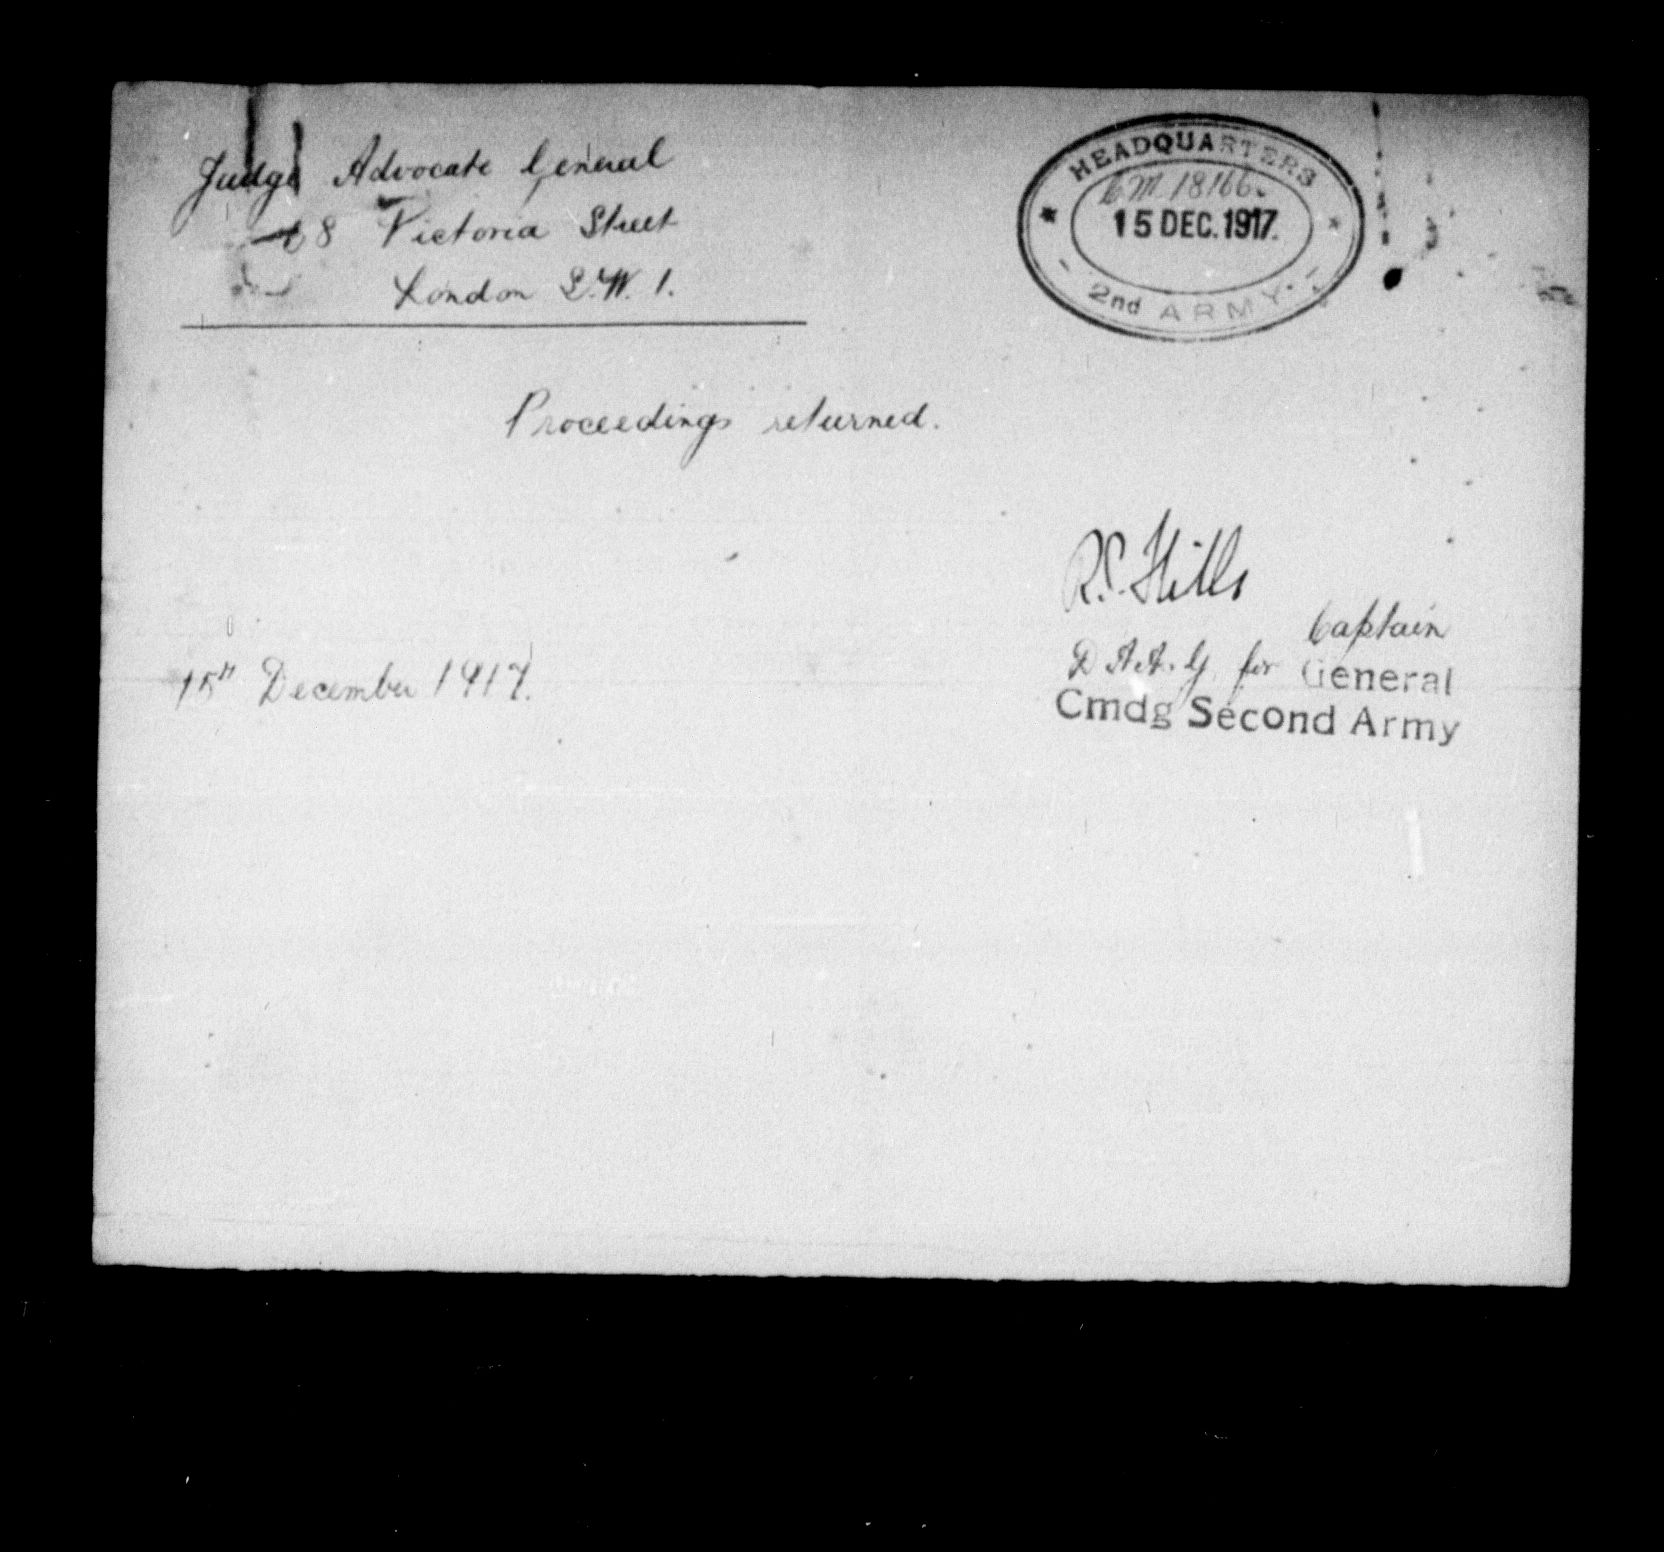 Judge Advocate General
68 Victoria Street
London S.W. 1.
HEADQUARTERS
C.M. 18166.
15 DEC. 1917.
2nd ARMY.
Proceedings returned.
R.S. Hills
Captain
D.A.A.G. for General
Cmdg Second Army
15th December 1917.